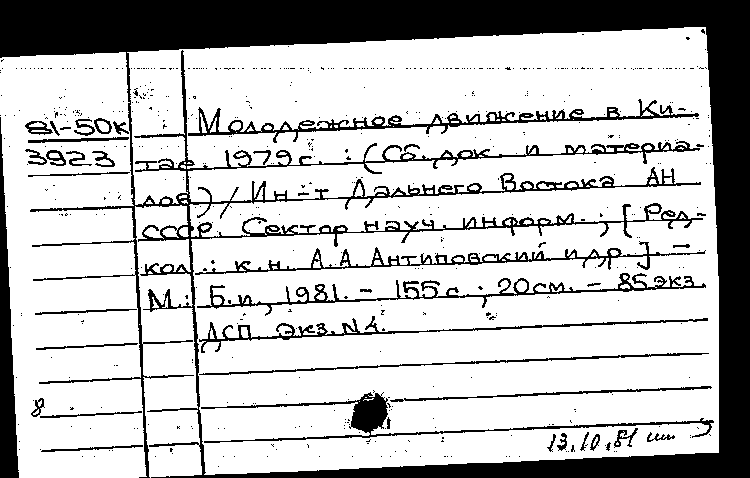 81-50к Молодежное движение в Ки-
3923 тае. 1979 г. : (Сб. док. и материа-
лов) / Ин-т Дальнего Востока АН
СССР. Сектор науч. информ. ; [Ред-
кол.: к.н. А.А. Антиповский и др.]. -
М.: Б.и., 1981. - 155 с. ; 20 см. - 85 экз.
ДСП Экз. N 4.
8
13.10.81